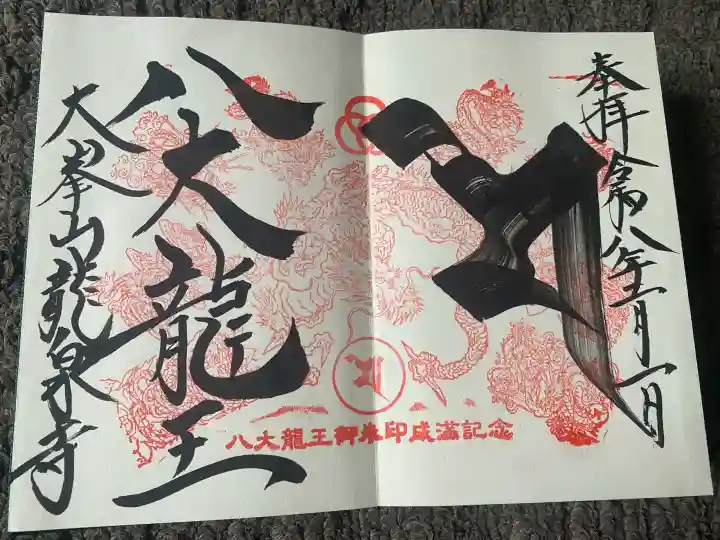 奉拝 令和八年一月一日
八大龍王
大峯山龍泉寺
八大龍王御朱印成満記念